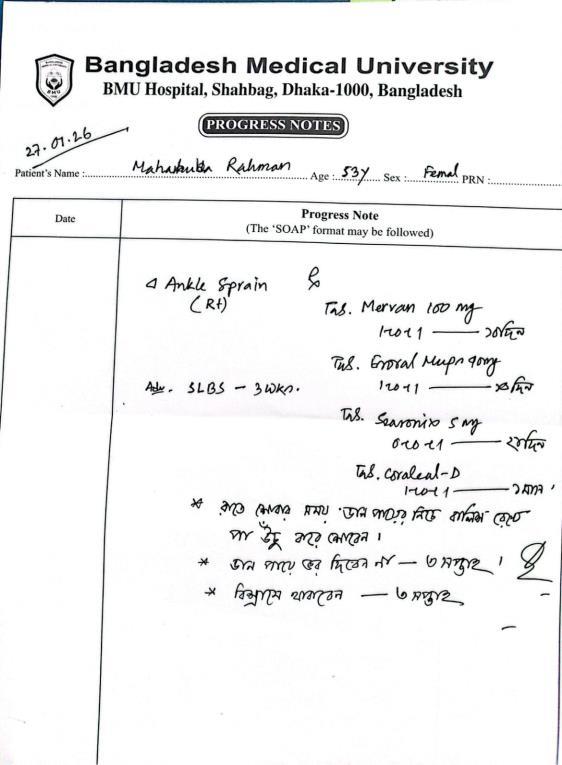 Bangladesh Medical University
BMU Hospital, Shahbag, Dhaka-1000, Bangladesh
PROGRESS NOTES
27.01.26
Patient's Name : Rahman Age : 53y Sex : Femal PRN :
Date
Progress Note
(The 'SOAP' format may be followed)
Ankle Sprain
(Rt)
Tab. Mervan 100 mg
1+0+1 ——
Tab. Mups
1+0+1 —— দিন
Adv. SLBS – 3 wks.
Tab. 5 mg
0+0+1 —— দিন
Tab. Coralcal-D
1+0+1 —— ১ মাস
* রাতে শোবার সময় ডান পায়ের নিচে বালিশ রেখে
পা উঁচু করে শোবেন।
* ডান পায়ে ভর দিবেন না — ৩ সপ্তাহ।
* বিশ্রামে থাকবেন — ৩ সপ্তাহ